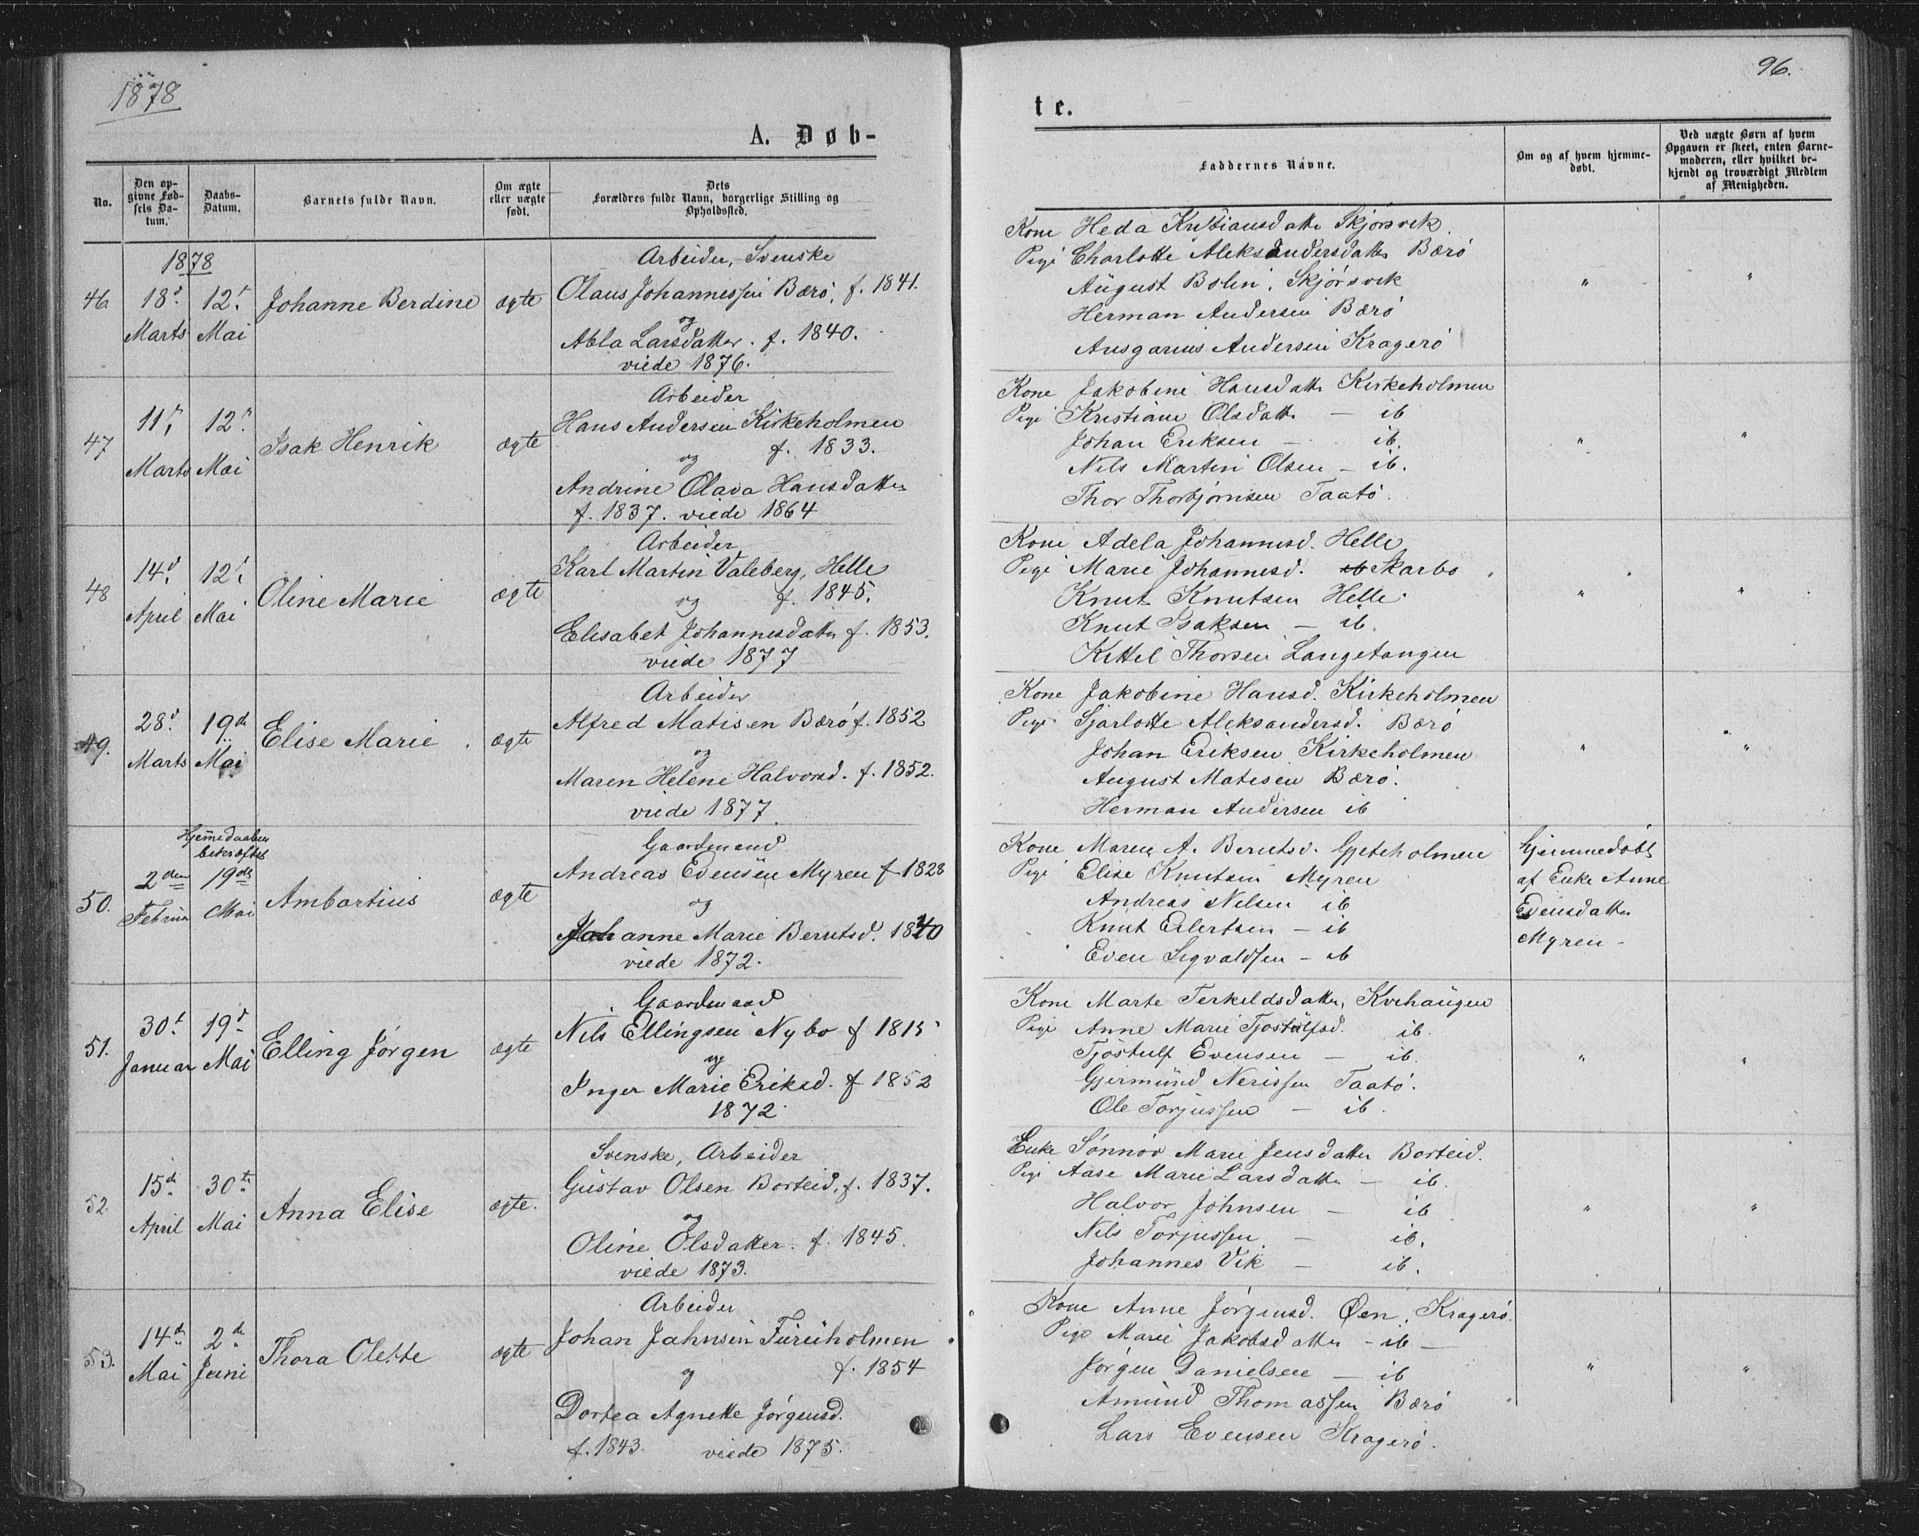 1878
A. Døb-
No.
Den opgivne Fødsels Datum.
Daabs-Datum.
Barnets fulde Navn.
Om ægte eller uægte født.
Dets Forældres fulde Navn, borgerlige Stilling og Opholdssted.
1878
46
18d Marts
12t Mai
Johanne Berdine
ægte
Arbeider, Svenske
Olaus Johannessen Bærø, f. 1841.
og
Abla Larsdatter. f. 1840.
viede 1876.
47
11t Marts
12t Mai
Isak Henrik
ægte
Arbeider
Hans Andersen Kirkeholmen
og f. 1833.
Andrine Olava Hansdatter
f. 1837. viede 1864
48
14d April
12t Mai
Oline Marie
ægte
Arbeider
Karl Martin Valeberg, Helle
og f. 1845.
Elisabet Johannesdatter f. 1853.
viede 1877
49.
28d Marts
19de Mai
Elise Marie
ægte
Arbeider
Alfred Matisen Bærø f. 1852
og
Maren Helene Halvorsd. f. 1852.
viede 1877.
Hjemmedaaben
bekræftet
50.
2den Februar
19de Mai
Ambortius
ægte
Gaardmand
Andreas Evensen Myren f 1828
og
Johanne Marie Berntsd. 1840
viede 1872.
51.
30t Januar
19d Mai
Elling Jørgen
ægte
Gaardmand
Nils Ellingsen Nybo f 1815
og
Inger Marie Eriksd. f 1852
1872.
52.
15d April
30te Mai
Anna Elise
ægte.
Svenske, Arbeider
Gustav Olsen Borteid, f. 1837.
og
Oline Olsdatter. f. 1845.
viede 1873.
53.
14d Mai
2d Juni
Thora Olette
ægte
Arbeider
Johan Jahnsen Furuholmen
og f. 1854
Dortea Agnette Jørgensd.
f. 1843. viede 1875.
96.
te.
Faddernes Navne.
Om og af hvem hjemmedøbt.
Ved uægte Børn af hvem Opgaven er skeet, enten Barnemoderen, eller hvilket bekjendt og troværdigt Medlem af Menigheden.
Kone Heda Kristiansdatter Skjørsvik.
Pige Charlotte Aleksandersdatter Bærø
August Bolin, Skjørsvik " "
Herman Andersen Bærø
Ansgarius Andersen Kragerø
Kone Jakobine Hansdatter Kirkeholmen
Pige Kristiane Olsdatter — ib
Johan Eriksen — ib. " "
Nils Martin Olsen — ib.
Thor Thorbjørnsen Taatø.
Kone Adela Johannesd. Helle
Pige Marie Johannesd. Skarbo
Knut Knutsen Helle. " "
Knut Isaksen — ib.
Kittil Thorsen Langetangen
Kone Jakobine Hansd. Kirkeholmen
Pige Sjarlotte Aleksandersd. Bærø
Johan Eriksen Kirkeholmen " "
August Matisen Bærø.
Herman Andersen ib
Kone Maren A. Berntsd. Gjeteholmen
Pige Elise Knutsen Myren
Andreas Nilsen ib
Knut Eilertsen — ib
Even Sigvaldsen — ib
hjemmedøbt
af Enke Anne
Evensdatter
Myren.
Kone Marte Terkeldsdatter, Kvehaugen
Pige Anne Marie Tjostulfsd. ib.
Tjostulf Evensen — ib. " "
Gjermund Nerissen Taatø.
Ole Torjussen — ib.
Enke Sønnøv Marie Jensdatter Borteid.
Pige Aase Marie Larsdatter — ib.
Halvor Johnsen — ib " "
Nils Torjussen — ib.
Johannes Vik — ib.
Kone Anne Jørgensd. Øen, Kragerø.
Pige Marie Jakobsdatter — ib —
Jørgen Danielsen — ib " "
Amund Thomassen Bærø
Lars Evensen Kragerø.